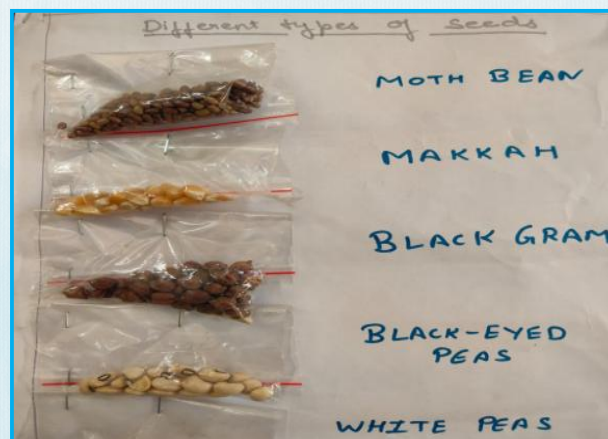 Different types of seeds
MOTH BEAN
MAKKAH
BLACK GRAM
BLACK-EYED
PEAS
WHITE PEAS